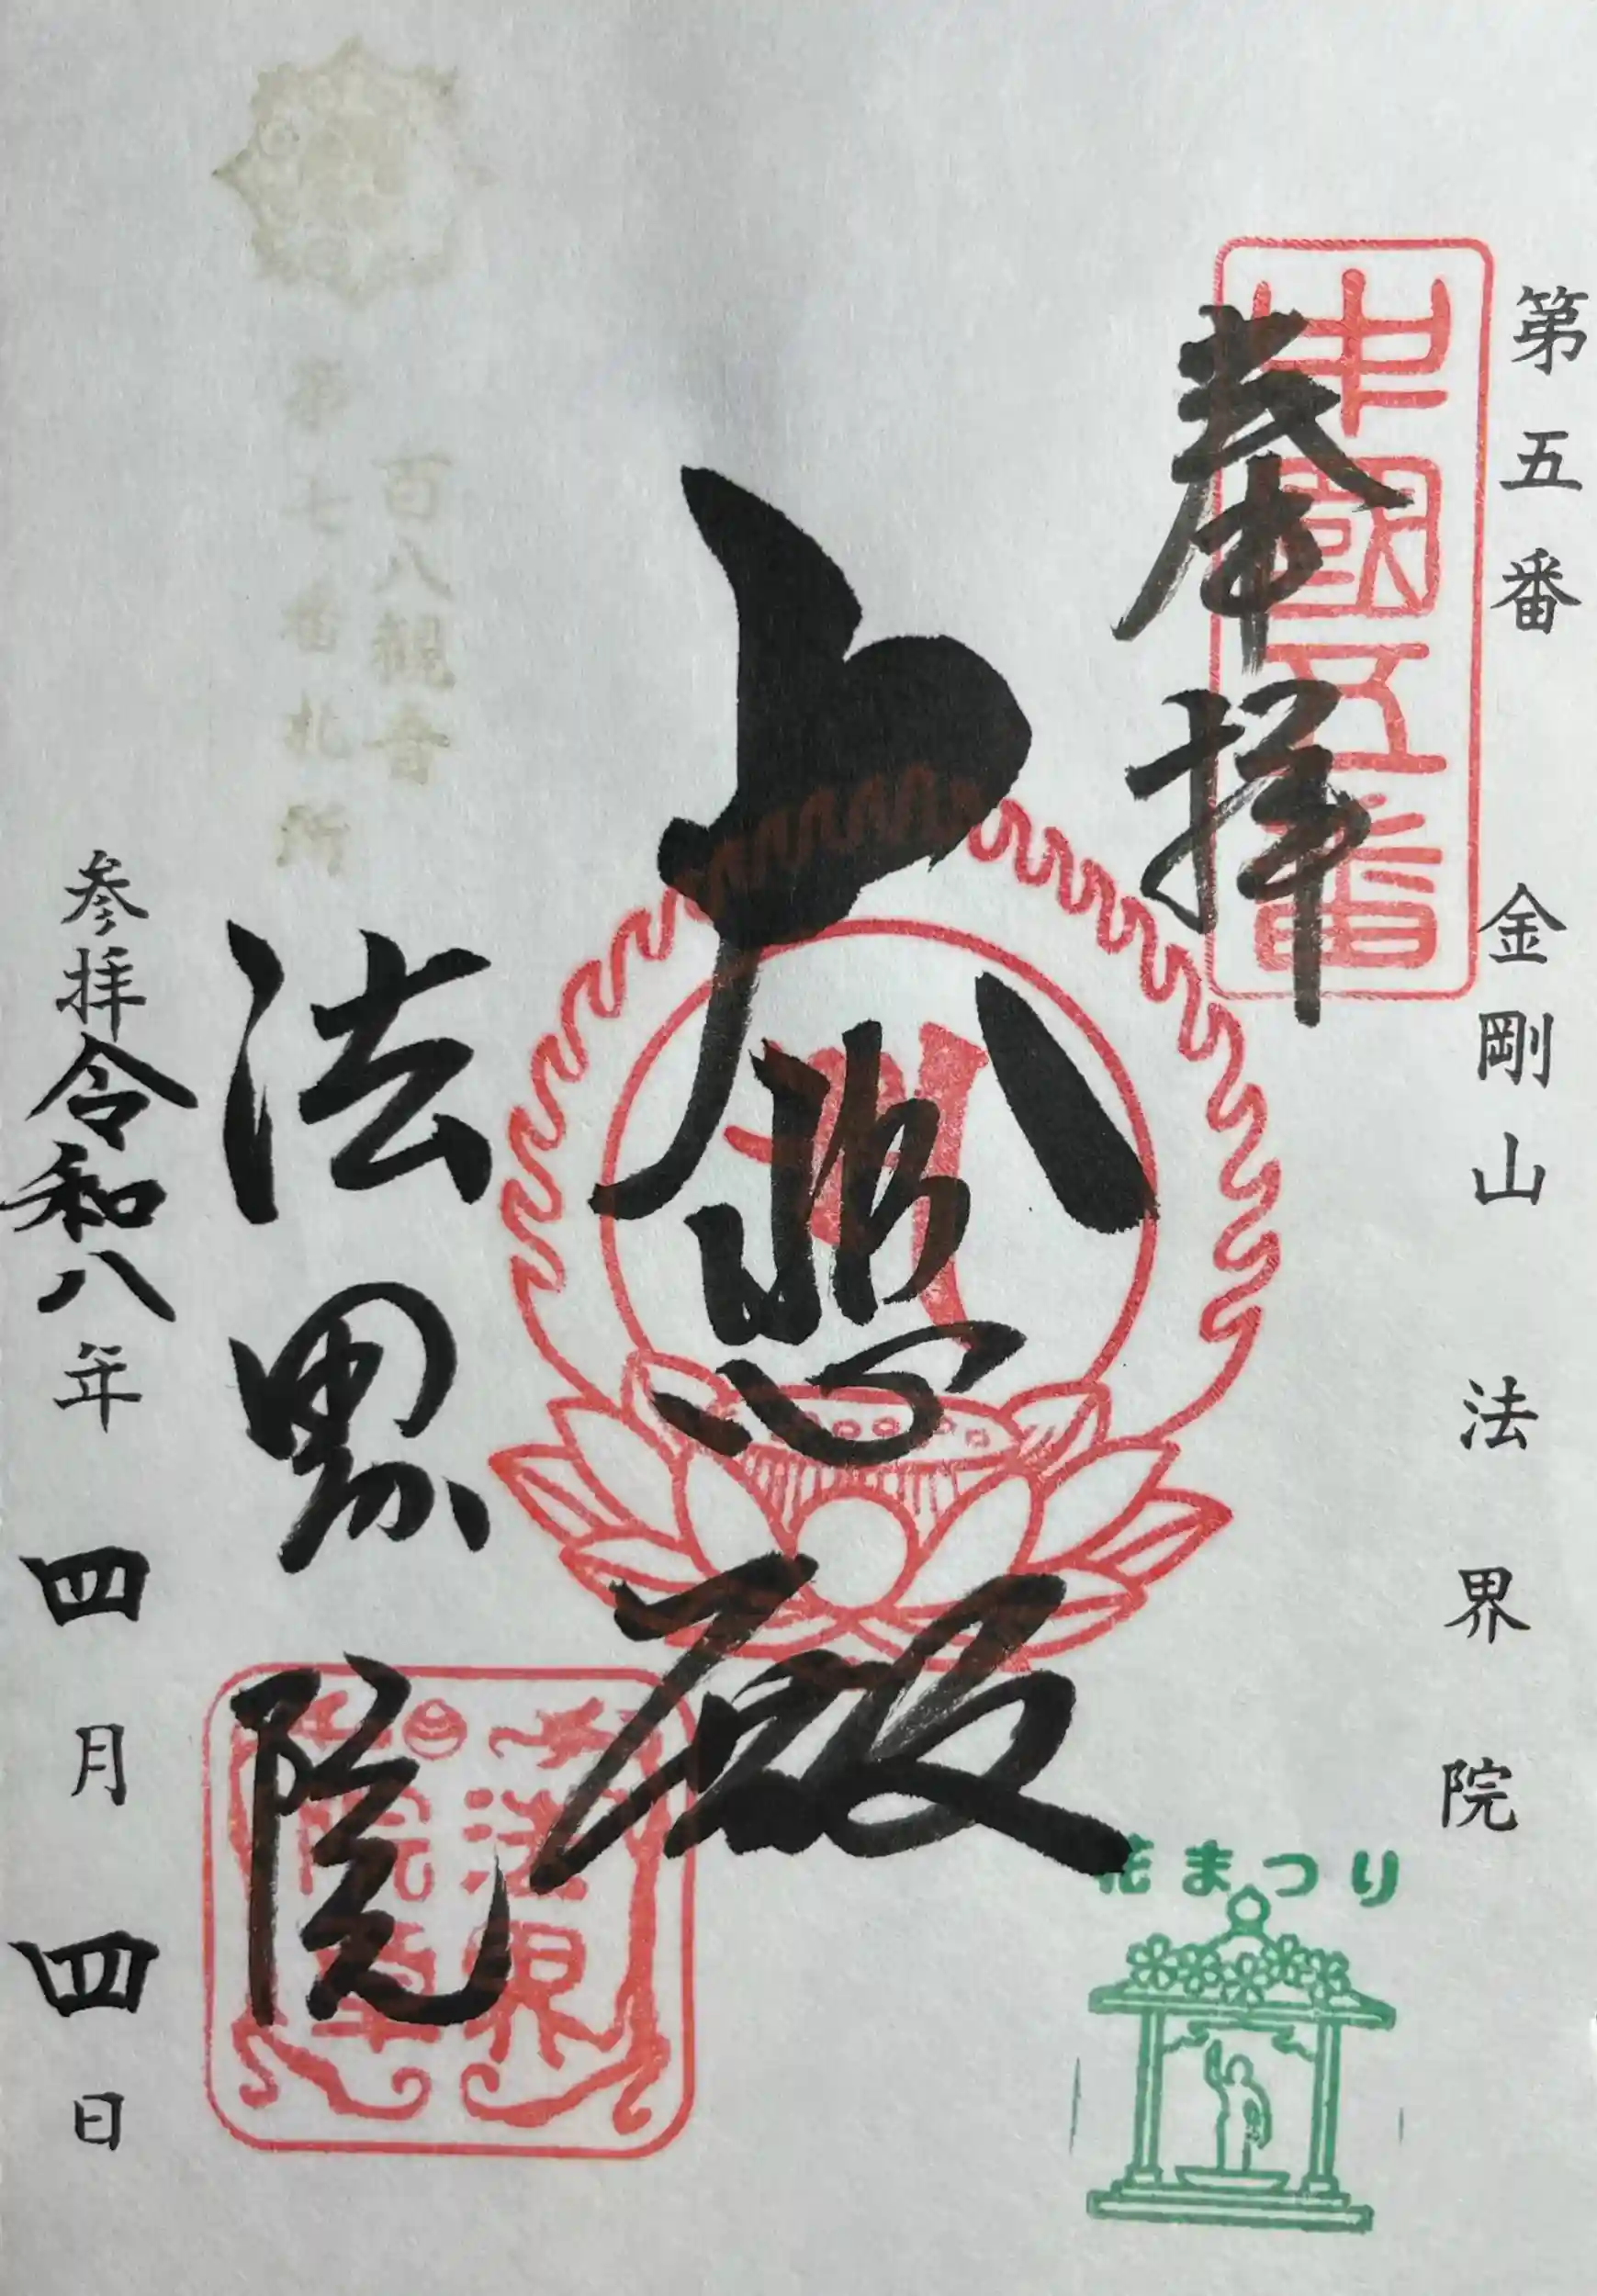 第五番 金剛山 法界院
中國五番
奉拝
花まつり
大悲殿
百八観音
第七番札所
法界院
法界
院章
参拝令和八年四月四日